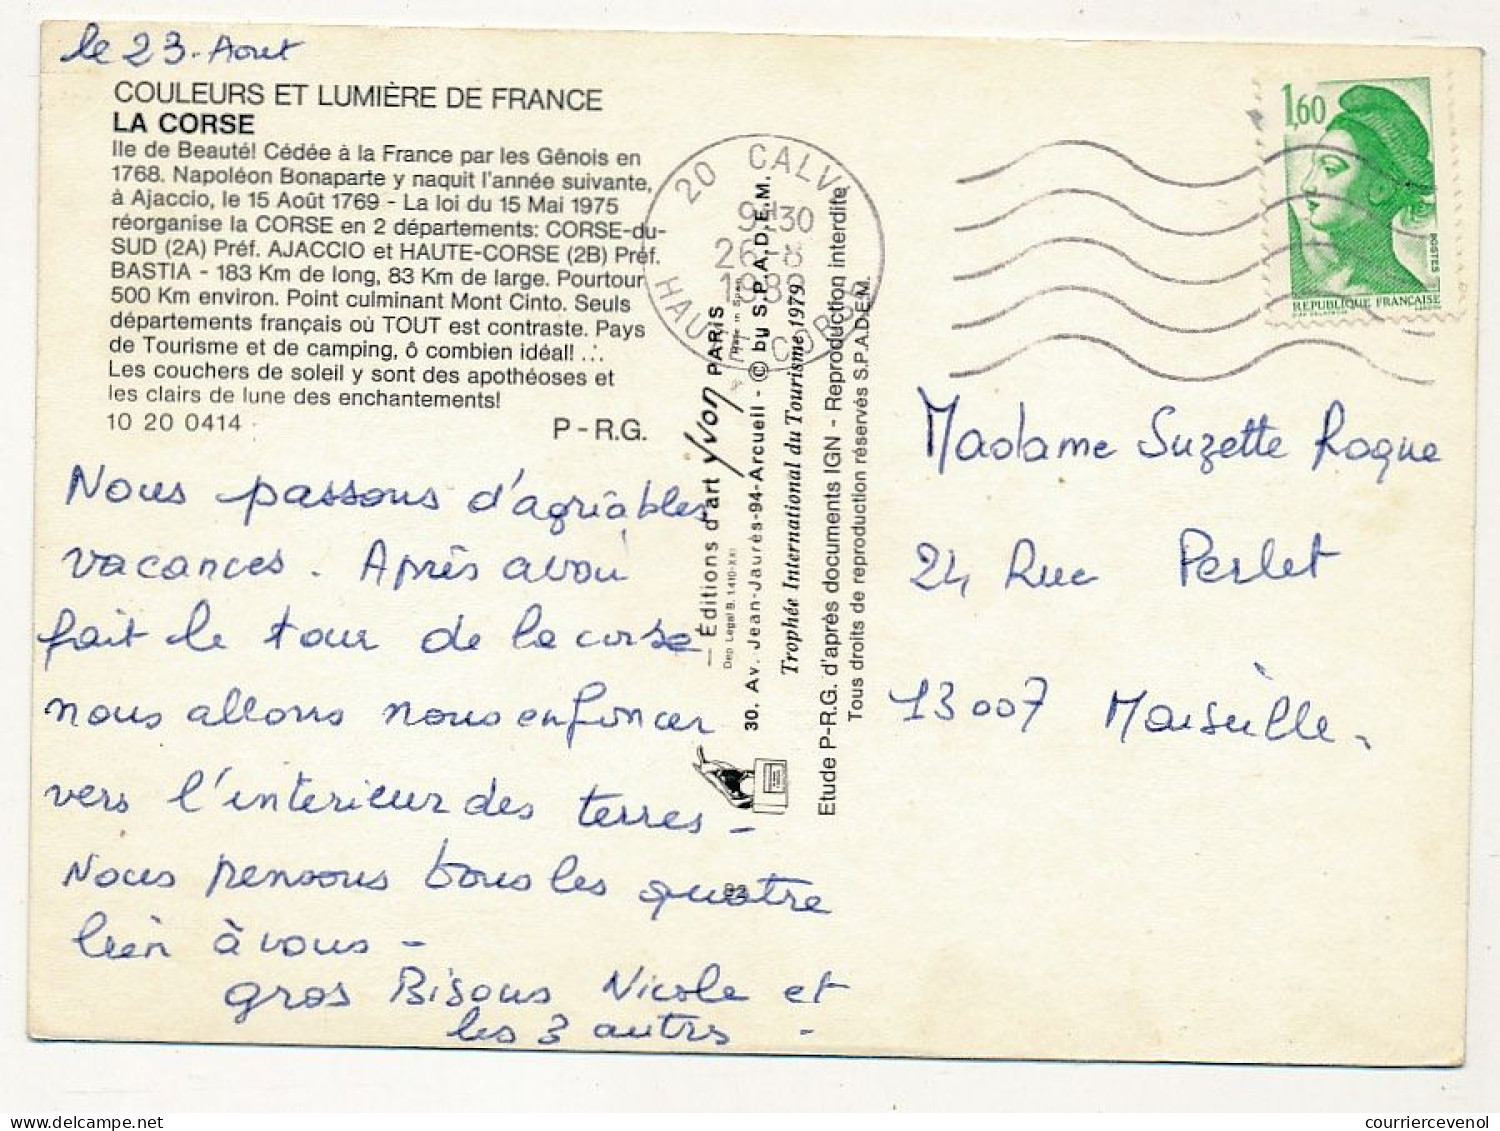 le 23. Aout
COULEURS ET LUMIÈRE DE FRANCE
LA CORSE
Ile de Beauté! Cédée à la France par les Gênois en
1768. Napoléon Bonaparte y naquit l'année suivante,
à Ajaccio, le 15 Août 1769 - La loi du 15 Mai 1975
réorganise la CORSE en 2 départements: CORSE-du-
SUD (2A) Préf. AJACCIO et HAUTE-CORSE (2B) Préf.
BASTIA - 183 Km de long, 83 Km de large. Pourtour
500 Km environ. Point culminant Mont Cinto. Seuls
départements français où TOUT est contraste. Pays
de Tourisme et de camping, ô combien idéal! ...
Les couchers de soleil y sont des apothéoses et
les clairs de lune des enchantements!
10 20 0414
P - R.G.
Nous passons d'agréables
vacances. Après avoir
fait le tour de la corse
nous allons nous enfoncer
vers l'interieur des terres -
Nous pensons tous les quatre
bien à vous -
gros Bisous Nicole et
les 3 autres -
— Éditions d'art Yvon PARIS
Dep Legal B. 1410-XXI
Made in Spain
30. Av. Jean-Jaurès-94-Arcueil - © by S.P.A.D.E.M.
Trophée International du Tourisme 1979
Etude P-R.G. d'après documents IGN - Reproduction interdite
Tous droits de reproduction réservés S.P.A.D.E.M.
20 CALVI
9H30
26-8
HAUTE CORSE
1,60
POSTES
REPUBLIQUE FRANÇAISE
Madame Suzette Roque
24 Rue Perlet
13007 Marseille.
courriercevenol